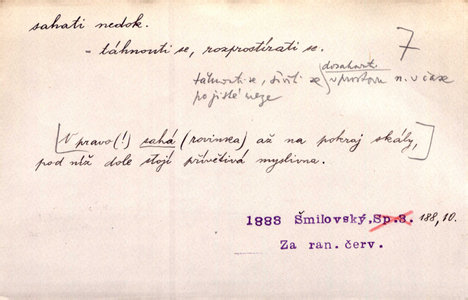 sahati nedok.
- táhnouti se, rozprostírati se. 7
dosahovati
táhnouti se, šířiti se v prostoru n. v čase
po jisté meze
V pravo(!) sahá (rovinka) až na pokraj skály,
pod níž dole stojí přívětivá myslivna.
1883 Šmilovský, Sp.3. 188,10.
Za ran. červ.